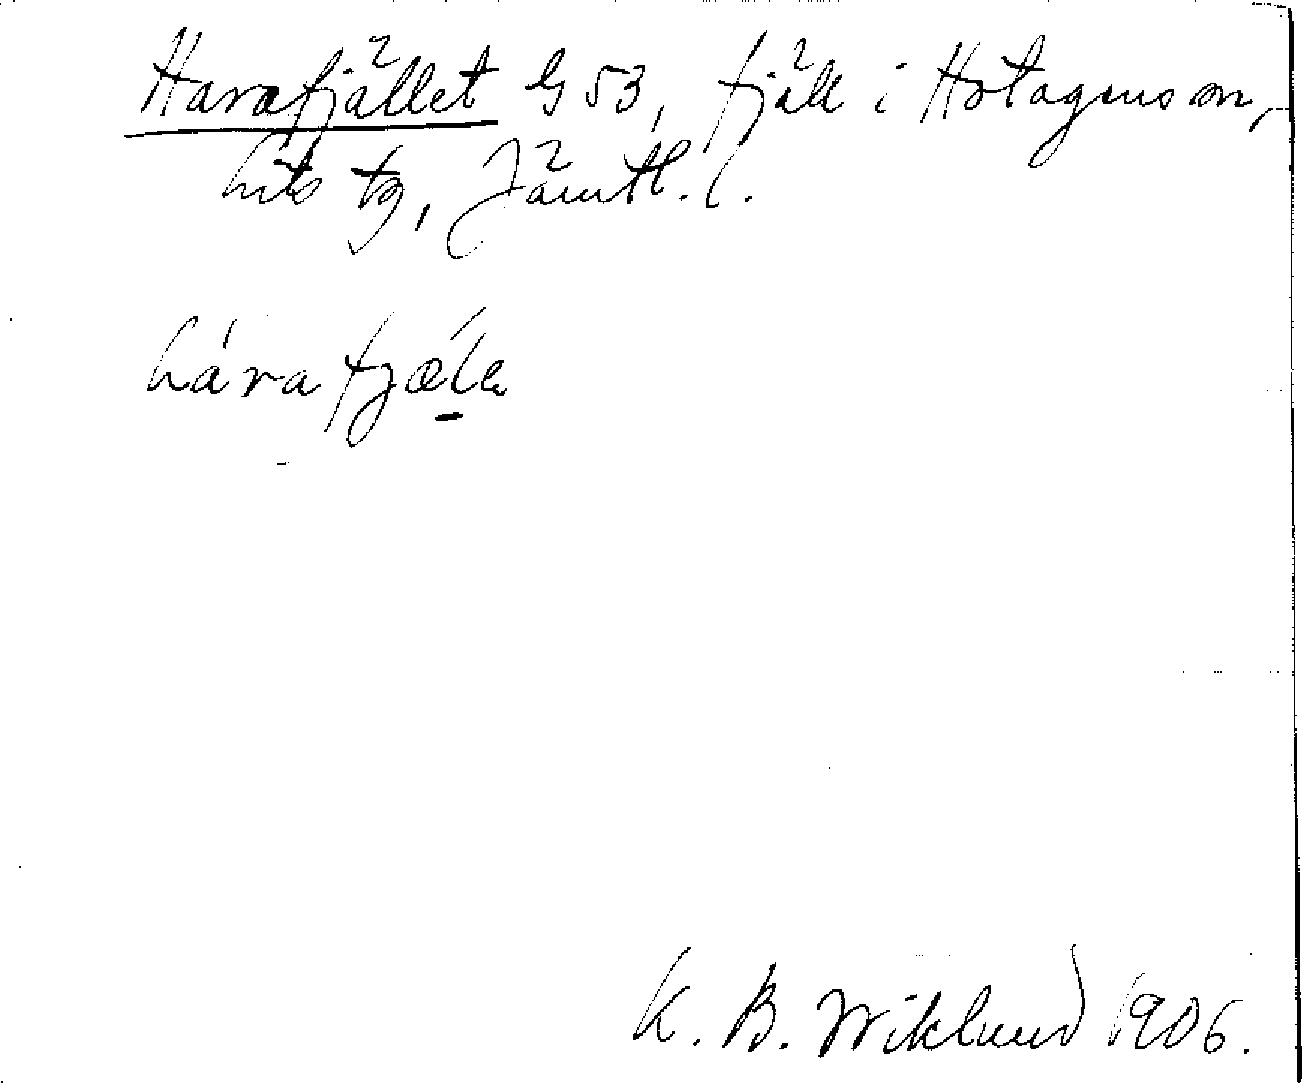 Harafjället G 53, fjäll i Hotagens sn,
Lits tg, Jämtl. l.
hárafjæ̱ĺe
K. B. Wiklund 1906.